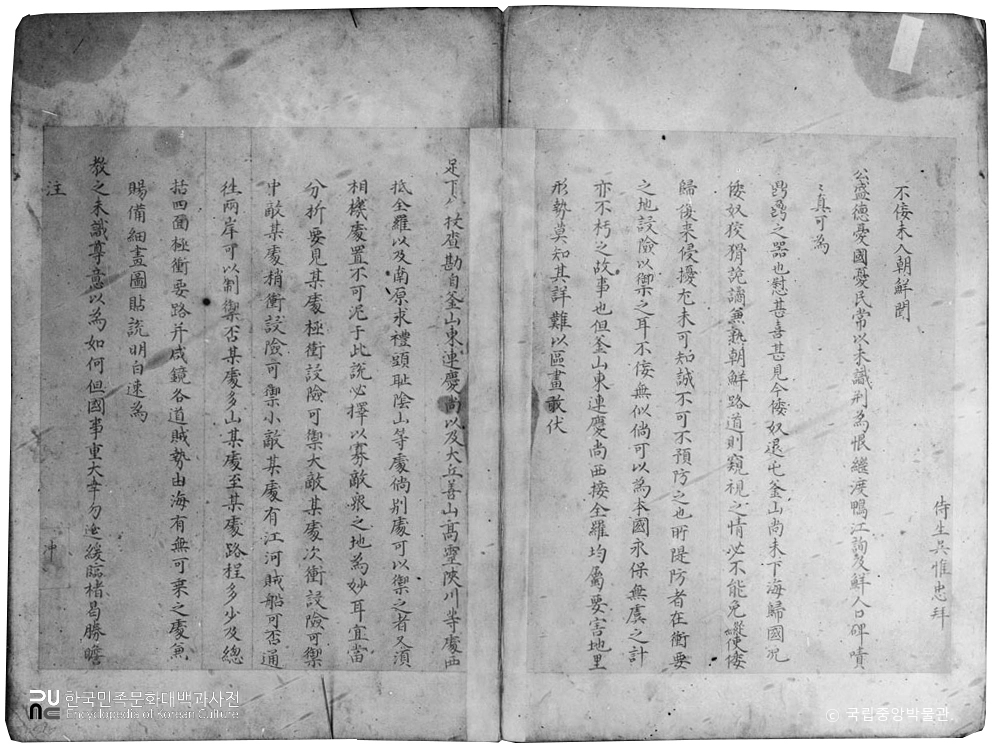 侍生吳惟忠拜
不佞未入朝鮮聞
公盛德憂國憂民常以未識荊為恨繼渡鴨江詢及鮮人口碑嘖
〻真可為
之器也慰甚喜甚見今倭奴退屯釜山尚未下海歸國況
倭奴狡猾詭譎兼熟朝鮮路道則窺視之情必不能免縱使倭
歸後來侵擾尤未可知誠不可不預防之也所隄防者在衝要
之地設險以禦之耳不佞無似倘可以為本國永保無虞之計
亦不朽之故事也但釜山東連慶尚西接全羅均屬要害地里
形勢莫知其詳難以區畫敢伏
足下一杖查勘自釜山東連慶尚以及大丘善山高靈陜川等處西
抵全羅以及南原求禮頭耻陰山等處倘別處可以禦之者又須
相機處置不可泥于此說必擇以寡敵眾之地為妙耳宜當
分折要見某處極衝設險可禦大敵某處次衝設險可禦
中敵某處稍衝設險可禦小敵某處有江河賊船可否通
徃兩岸可以制禦否某處多山某處至某處路程多少及總
括四面極衝要路并咸鏡各道賊勢由海有無可乘之處兼
賜備細畫圖貼說明白速為
教之未識尊意以為如何但國事重大幸勿遲緩臨楮曷勝瞻
注
冲
한국민족문화대백과사전
Encyclopedia of Korean Culture
© 국립중앙박물관